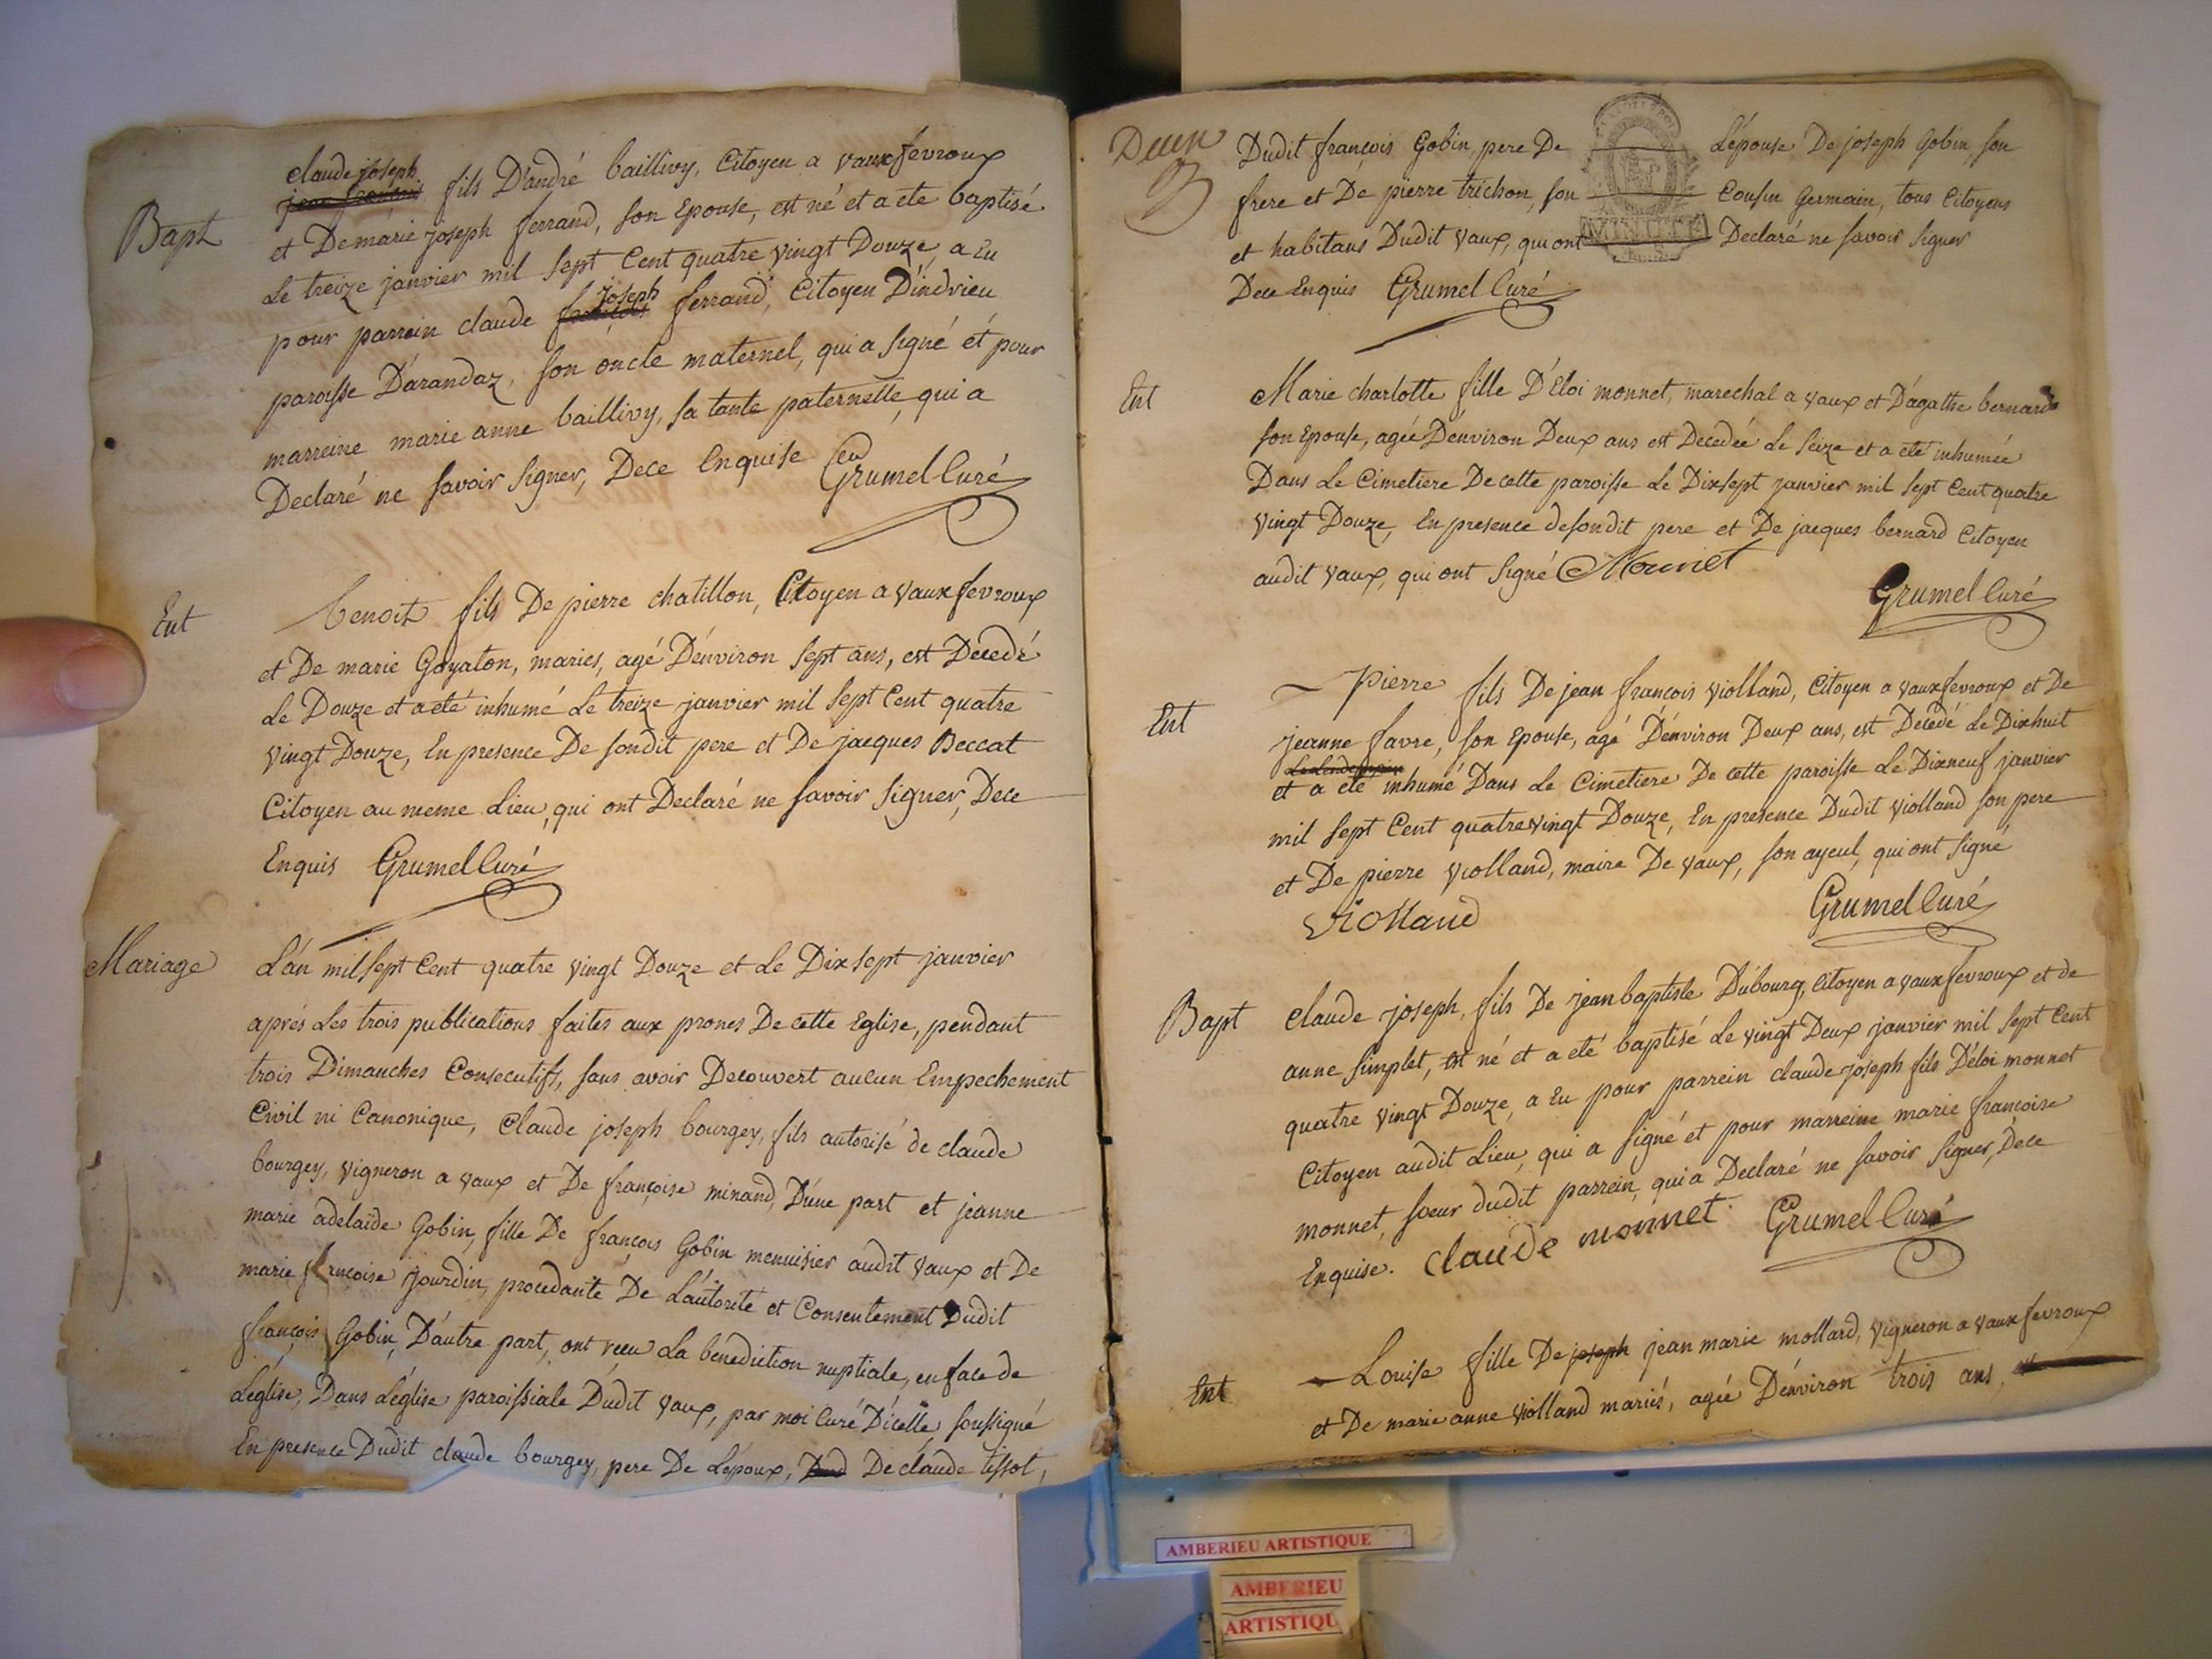 Bapt
claude joseph
jean françois fils D'andré baillivy, Citoyen a vauxfevroux
et De marie joseph ferrand, son Epouse, est né et a eté baptisé
Le treize janvier mil sept Cent quatre vingt Douze, a Eu
pour parrein claude françois joseph ferrand, Citoyen D'indrieu
paroisse D'arandaz, son oncle maternel, qui a signé et pour
marreine marie anne baillivy, sa tante paternelle, qui a
Declaré ne savoir signer, Dece Enquise
Grumel Curé
Ent
benoit fils De pierre chatillon, Citoyen a vauxfevroux
et De marie Goyaton, maries, agé D'environ sept ans, est Decedé
Le Douze et a eté inhumé Le treize janvier mil sept Cent quatre
vingt Douze, En presence De sondit pere et De jacques Beccat
Citoyen au meme Lieu, qui ont Declaré ne savoir signer, Dece
Enquis Grumel Curé
Mariage
L'an mil sept Cent quatre vingt Douze et Le Dix sept janvier
aprés Les trois publications faites aux prones De cette Eglise, pendant
trois Dimanches Consecutifs, sans avoir Decouvert aucun Empechement
Civil ni Canonique, Claude joseph bourgey, fils autorisé de claude
bourgey, vigneron a vaux et De françoise minand, D'une part et jeanne
marie adelaïde Gobin, fille De françois Gobin menuisier audit vaux et De
marie françoise jourdin, procedante De L'autorité et Consentement Dudit
françois Gobin, D'autre part, ont reçu La benediction nuptiale, en face de
L'eglise, Dans L'eglise paroissiale Dudit vaux, par moi Curé D'icelle soussigné
En presence Dudit claude bourgey, pere De L'epoux, De claude tissot,
Deux
Dudit françois Gobin, pere De L'épouse De joseph Gobin, son
frere et De pierre trichon, son Cousin Germain, tous Citoyens
et habitans Dudit vaux, qui ont Declaré ne savoir signer
MINUTE
Dece Enquis Grumel Curé
Ent
Marie charlotte fille D'Eloi monnet, marechal a vaux et D'agathe bernard
son Epouse, agée D'environ Deux ans est Decedée Le seize et a eté inhumée
Dans Le Cimetiere De cette paroisse Le Dixsept janvier mil sept Cent quatre
vingt Douze, En presence desondit pere et De jacques bernard Citoyen
audit vaux, qui ont signé Monnet
Grumel Curé
Ent
Pierre fils De jean françois violland, Citoyen a vauxfevroux et De
jeanne favre, son Epouse, agé D'environ Deux ans, est Decedé Le Dixhuit
et a eté inhumé Dans Le Cimetiere De cette paroisse Le Dixneuf janvier
mil sept Cent quatrevingt Douze, En presence Dudit violland son pere
et De pierre violland, maire De vaux, son ayeul, qui ont signé
violland
Grumel Curé
Bapt
Claude joseph, fils De jean baptiste Dubourg, Citoyen a vauxfevroux et de
anne simplet, est né et a eté baptisé Le vingt Deux janvier mil sept Cent
quatre vingt Douze, a Eu pour parrein claude joseph fils D'éloi monnet
Citoyen audit Lieu, qui a signé et pour marreine marie françoise
monnet, soeur dudit parrein, qui a Declaré ne savoir signer, Dece
Enquise. claude monnet Grumel Curé
Ent
Louise fille De joseph jean marie mollard, vigneron a vauxfevroux
et De marie anne violland mariés, agée D'environ trois ans,
AMBERIEU ARTISTIQUE
AMBERIEU
ARTISTIQU